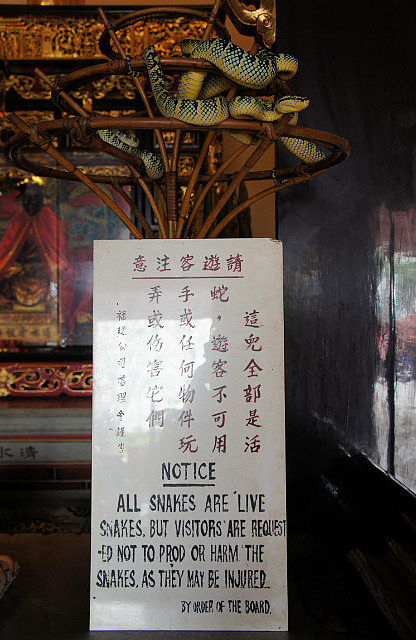 請遊客注意
這兒全部是活
蛇。遊客不可用
手或任何物件玩
弄或伤害它們
福建公司理會謹告
NOTICE
ALL SNAKES ARE 'LIVE
SNAKES, BUT VISITORS ARE REQUEST
-ED NOT TO PROD OR HARM THE
SNAKES, AS THEY MAY BE INJURED.
BY ORDER OF THE BOARD.